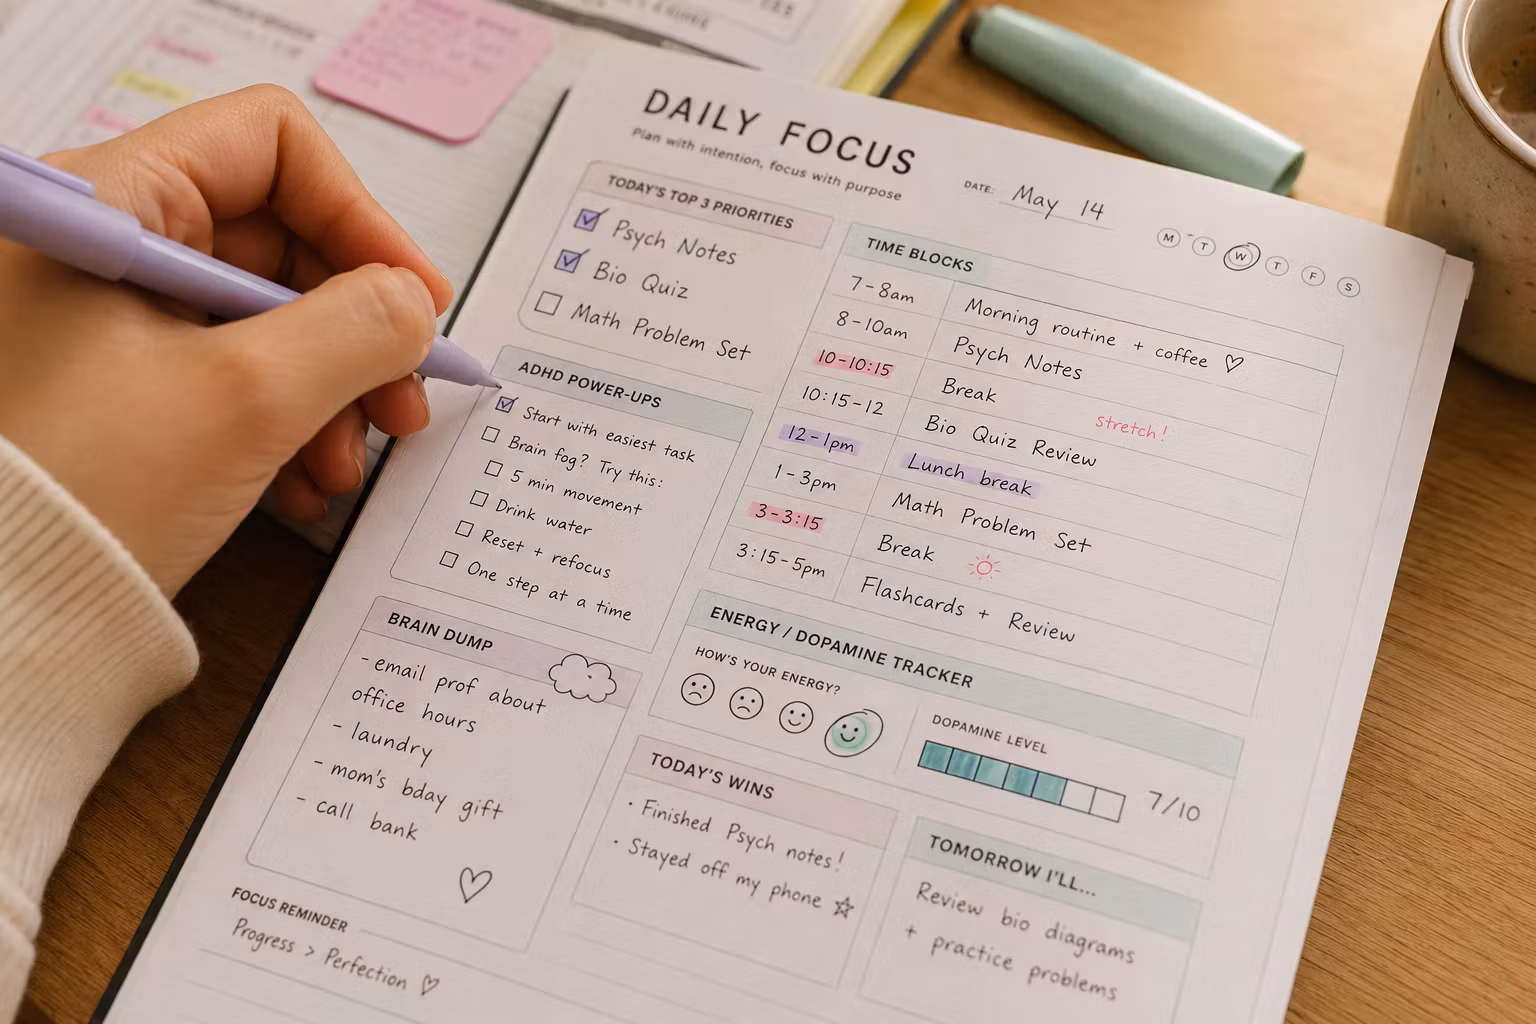 DAILY FOCUS
Plan with intention, focus with purpose
DATE: May 14
M T W T F S
TODAY'S TOP 3 PRIORITIES
Psych Notes
Bio Quiz
Math Problem Set
ADHD POWER-UPS
Start with easiest task
Brain fog? Try this:
5 min movement
Drink water
Reset + refocus
One step at a time
BRAIN DUMP
- email prof about
office hours
- laundry
- mom's bday gift
- call bank
FOCUS REMINDER
Progress > Perfection ♡
TIME BLOCKS
7-8am Morning routine + coffee ♡
8-10am Psych Notes
10-10:15 Break
stretch!
10:15-12 Bio Quiz Review
12-1pm Lunch break
1-3pm Math Problem Set
3-3:15 Break
3:15-5pm Flashcards + Review
ENERGY / DOPAMINE TRACKER
HOW'S YOUR ENERGY?
DOPAMINE LEVEL
7/10
TODAY'S WINS
· Finished Psych notes!
· Stayed off my phone ☆
TOMORROW I'LL...
Review bio diagrams
+ practice problems